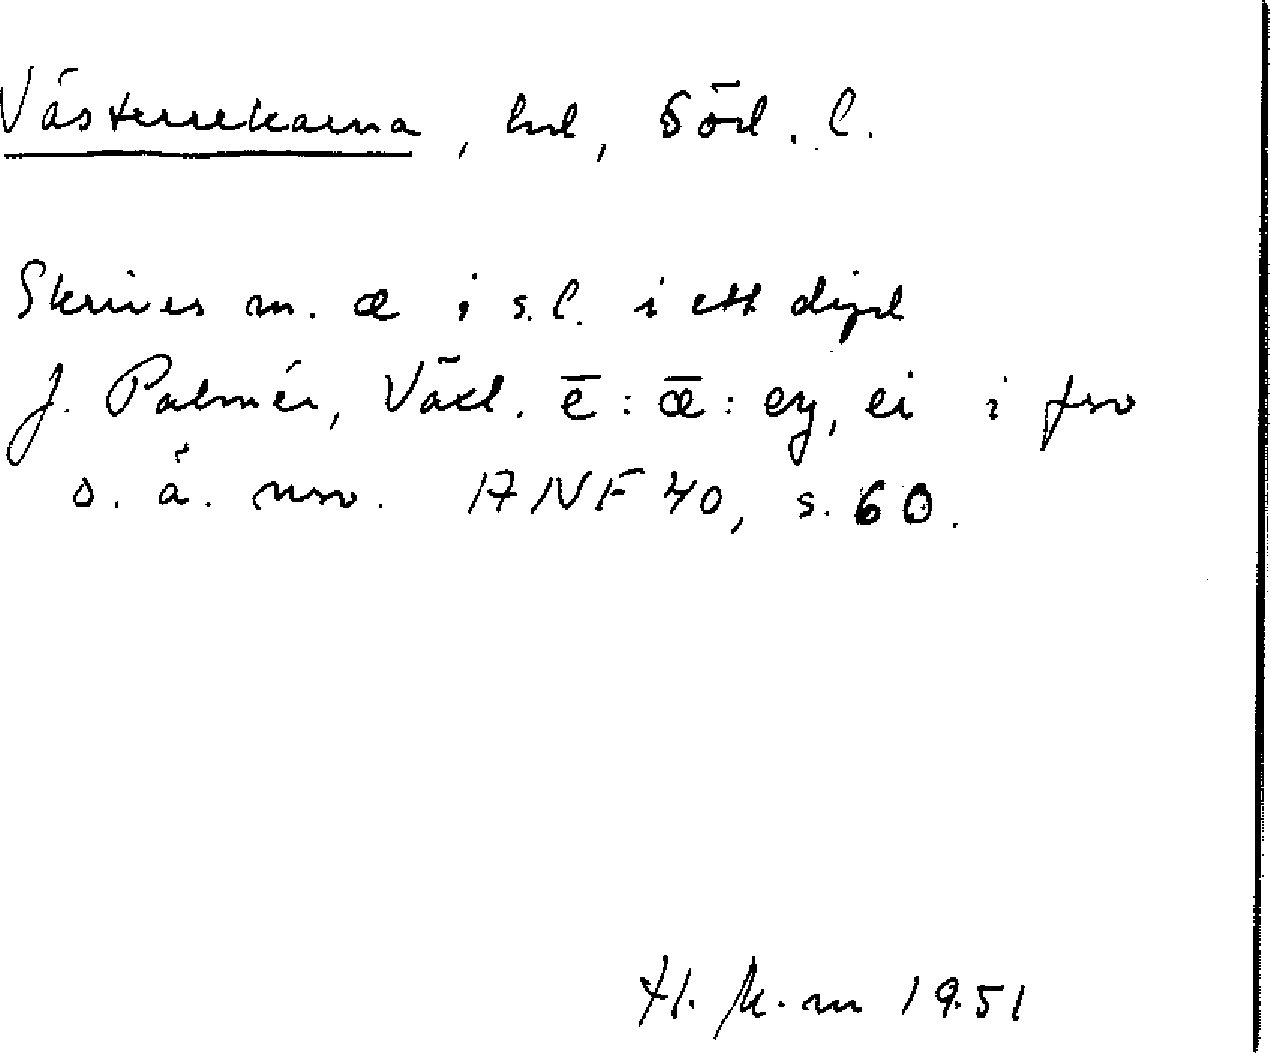 Västerrekarna, hd, Söd. l.
Skrives m. æ i s.l. i ett dipl
J. Palmér, Växl. ē : ǣ : ey, ei i fsv
o. ä. nsv. ANF 40, s. 60.
H. K-m 1951